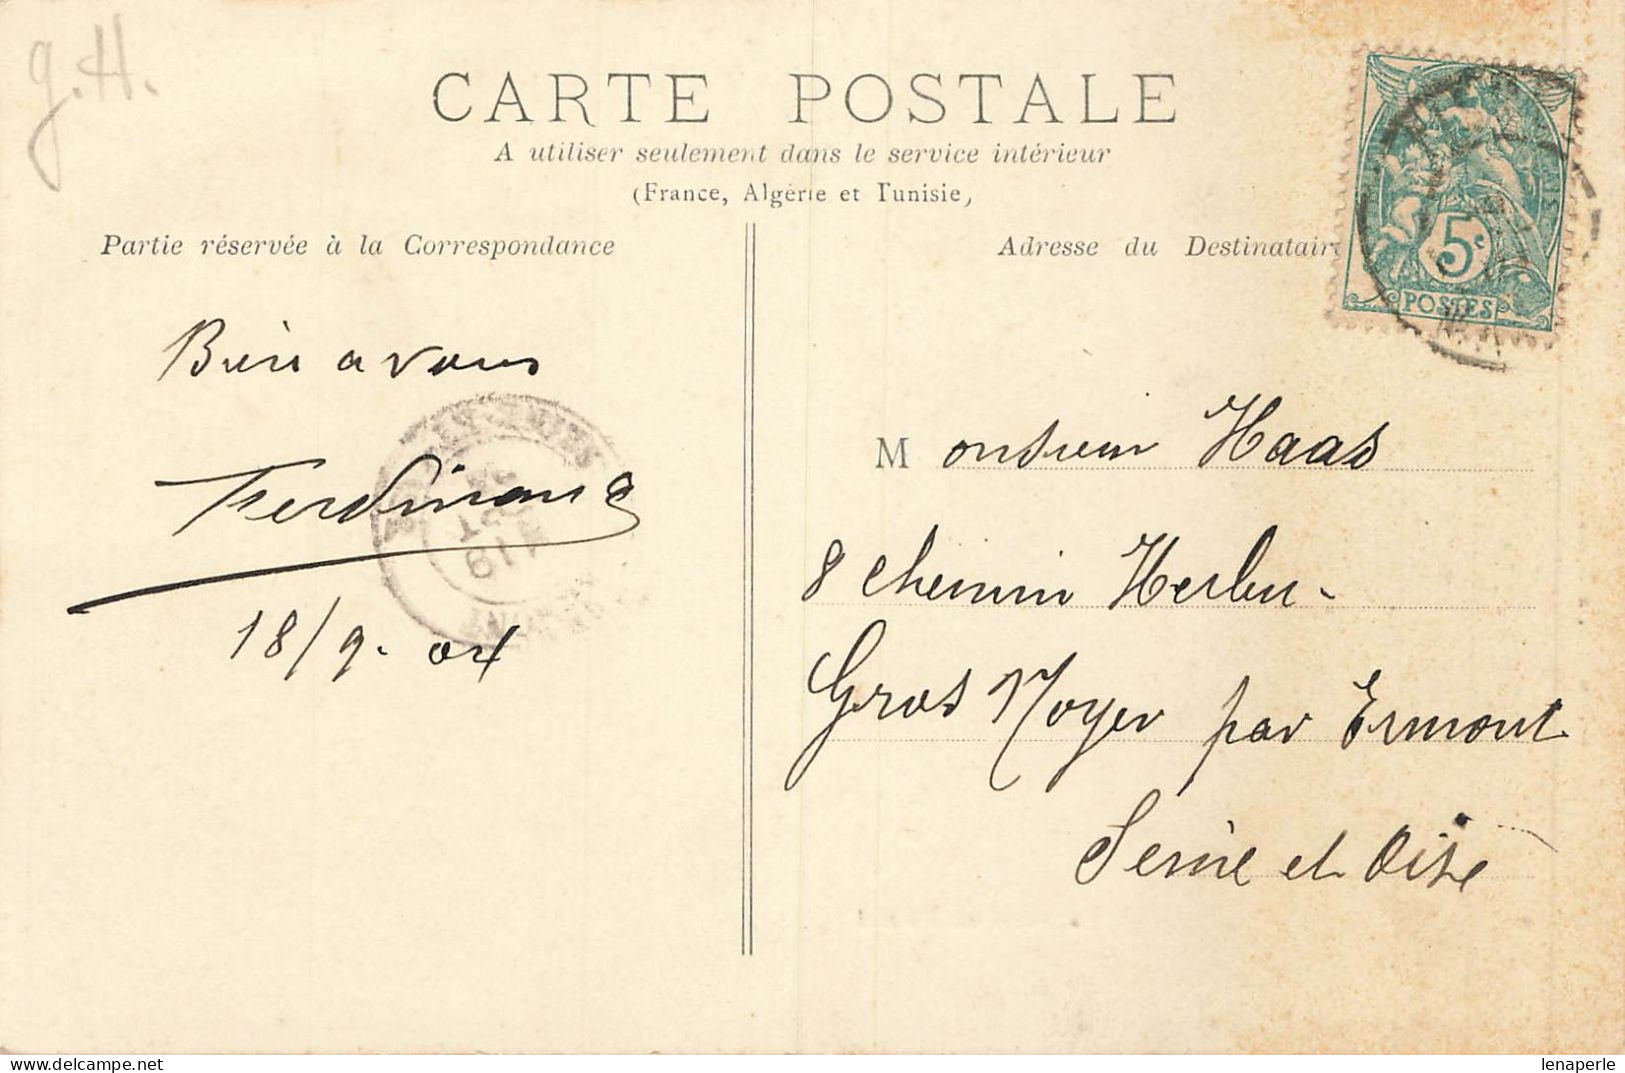 g.H.
CARTE POSTALE
A utiliser seulement dans le service intérieur
(France, Algérie et Tunisie)
Partie réservée à la Correspondance
Adresse du Destinataire
5c
POSTES
Bien a vous
Ferdinand
18/9. 04
Monsieur Haas
8 chemin Herbu-
Gros Noyer par Ermont
Seine et Oise
lenaperle